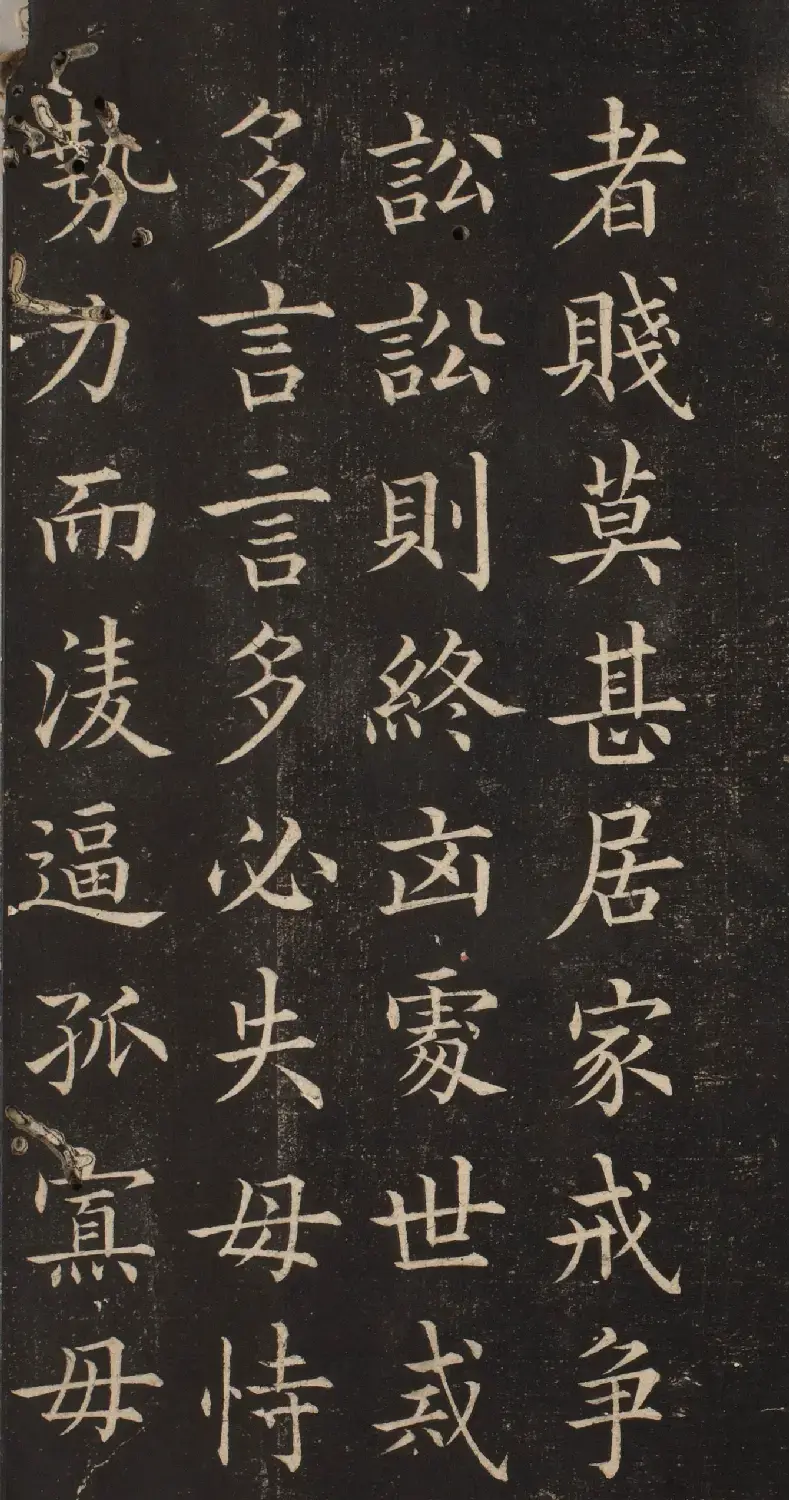 者賤莫甚居家戒争
訟訟則終凶處世戒
多言言多必失毋恃
勢力而淩逼孤寡毋